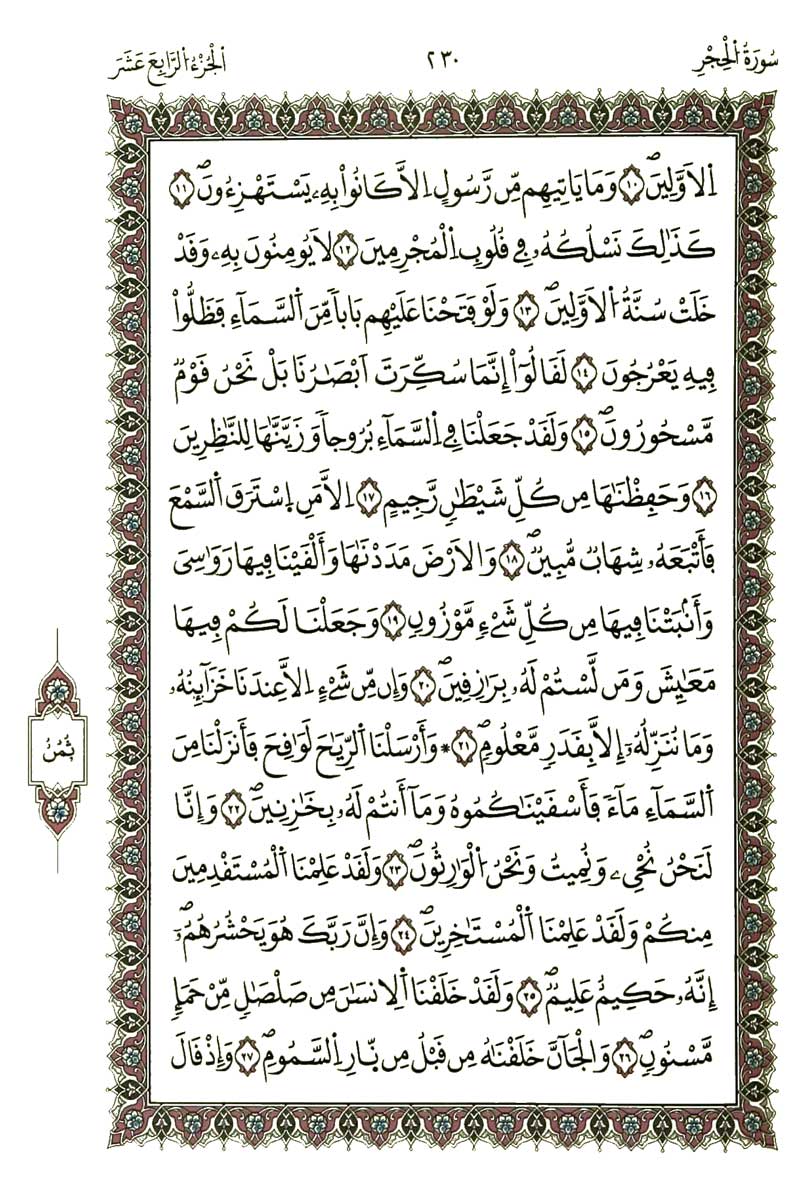 سُورَةُ اُ۬لْحِجْرِ
٢٣٠
اَ۬لْجُزْءُ اُ۬لرَّابِعَ عَشَرَ
اِ۬لَاوَّلِينَۖ ١٠ وَمَا يَاتِيهِم مِّن رَّسُولٍ اِلَّا كَانُواْ بِهِۦ يَسْتَهْزِءُونَۖ ١١
كَذَٰلِكَ نَسْلُكُهُۥ فِے قُلُوبِ اِ۬لْمُجْرِمِينَ ١٢ لَا يُومِنُونَ بِهِۦ وَقَدْ
خَلَتْ سُنَّةُ اُ۬لَاوَّلِينَۖ ١٣ وَلَوْ فَتَحْنَا عَلَيْهِم بَاباٗ مِّنَ اَ۬لسَّمَآءِ فَظَلُّواْ
فِيهِ يَعْرُجُونَ ١٤ لَقَالُوٓاْ إِنَّمَا سُكِّرَتَ اَبْصَٰرُنَا بَلْ نَحْنُ قَوْمٞ
مَّسْحُورُونَۖ ١٥ وَلَقَدْ جَعَلْنَا فِے اِ۬لسَّمَآءِ بُرُوجاٗ وَزَيَّنَّٰهَا لِلنَّٰظِرِينَ
١٦ وَحَفِظْنَٰهَا مِن كُلِّ شَيْطَٰنٖ رَّجِيمٍ ١٧ اِلَّا مَنِ اِ۪سْتَرَقَ اَ۬لسَّمْعَ
فَأَتْبَعَهُۥ شِهَابٞ مُّبِينٞۖ ١٨ وَالَارْضَ مَدَدْنَٰهَا وَأَلْقَيْنَا فِيهَا رَوَٰسِىَ
وَأَنۢبَتْنَا فِيهَا مِن كُلِّ شَےْءٖ مَّوْزُونٖ ١٩ وَجَعَلْنَا لَكُمْ فِيهَا
مَعَٰيِشَ وَمَن لَّسْتُمْ لَهُۥ بِرَٰزِقِينَۖ ٢٠ وَإِن مِّن شَےْءٍ اِلَّا عِندَنَا خَزَآئِنُهُۥ
وَمَا نُنَزِّلُهُۥٓ إِلَّا بِقَدَرٖ مَّعْلُومٖۖ ٢١ * وَأَرْسَلْنَا اَ۬لرِّيَٰحَ لَوَٰقِحَ فَأَنزَلْنَا مِنَ
اَ۬لسَّمَآءِ مَآءٗ فَأَسْقَيْنَٰكُمُوهُ وَمَآ أَنتُمْ لَهُۥ بِخَٰزِنِينَۖ ٢٢ وَإِنَّا
لَنَحْنُ نُحْيِۦ وَنُمِيتُ وَنَحْنُ اُ۬لْوَٰرِثُونَۖ ٢٣ وَلَقَدْ عَلِمْنَا اَ۬لْمُسْتَقْدِمِينَ
مِنكُمْ وَلَقَدْ عَلِمْنَا اَ۬لْمُسْتَٰخِرِينَۖ ٢٤ وَإِنَّ رَبَّكَ هُوَ يَحْشُرُهُمُۥٓۖ
إِنَّهُۥ حَكِيمٌ عَلِيمٞۖ ٢٥ وَلَقَدْ خَلَقْنَا اَ۬لِانسَٰنَ مِن صَلْصَٰلٖ مِّنْ حَمَإٖ
مَّسْنُونٖۖ ٢٦ وَالْجَآنَّ خَلَقْنَٰهُ مِن قَبْلُ مِن نّ۪ارِ اِ۬لسَّمُومِۖ ٢٧ وَإِذْ قَالَ
ثُمُنُ